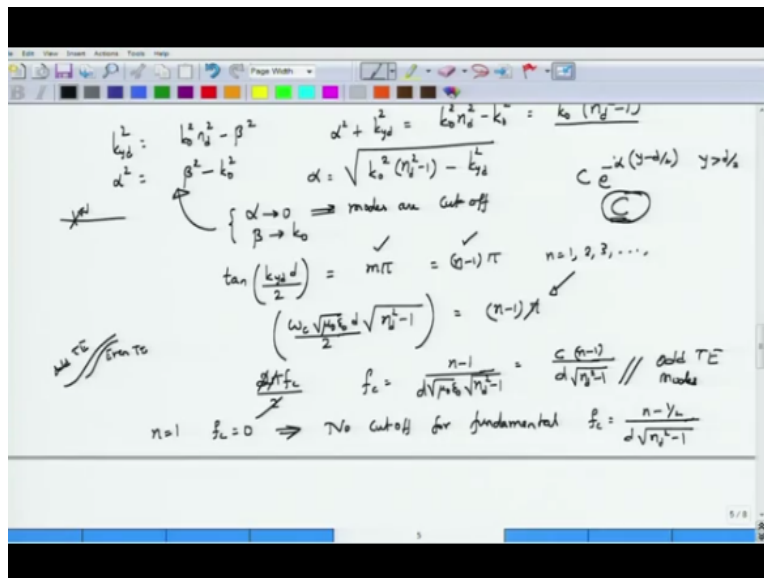 Edit View Insert Actions Tools Help
Page Width
B I
k_yd² = k₀² n_d² - β² α² + k_yd² = k₀² n_d² - k₀² = k₀ (n_d² - 1)
α² = β² - k₀² α = √(k₀² (n_d² - 1) - k_yd²) C e^(-α(y-d/2)) y>d/2
{ α → 0 ⇒ modes are cut off C
β → k₀
tan (k_yd d / 2) = mπ = (n-1) π n = 1, 2, 3, ...,
(ω_c √μ₀ε₀ d / 2 √(n_d² - 1)) = (n-1) π
odd TE Even TE
2πf_c / 2 f_c = n-1 / d√μ₀ε₀ √(n_d² - 1) = c (n-1) / d√(n_d² - 1) // odd TE modes
n=1 f_c = 0 ⇒ No cutoff for fundamental f_c = n - 1/2 / d√(n_d² - 1)
5 / 8
5